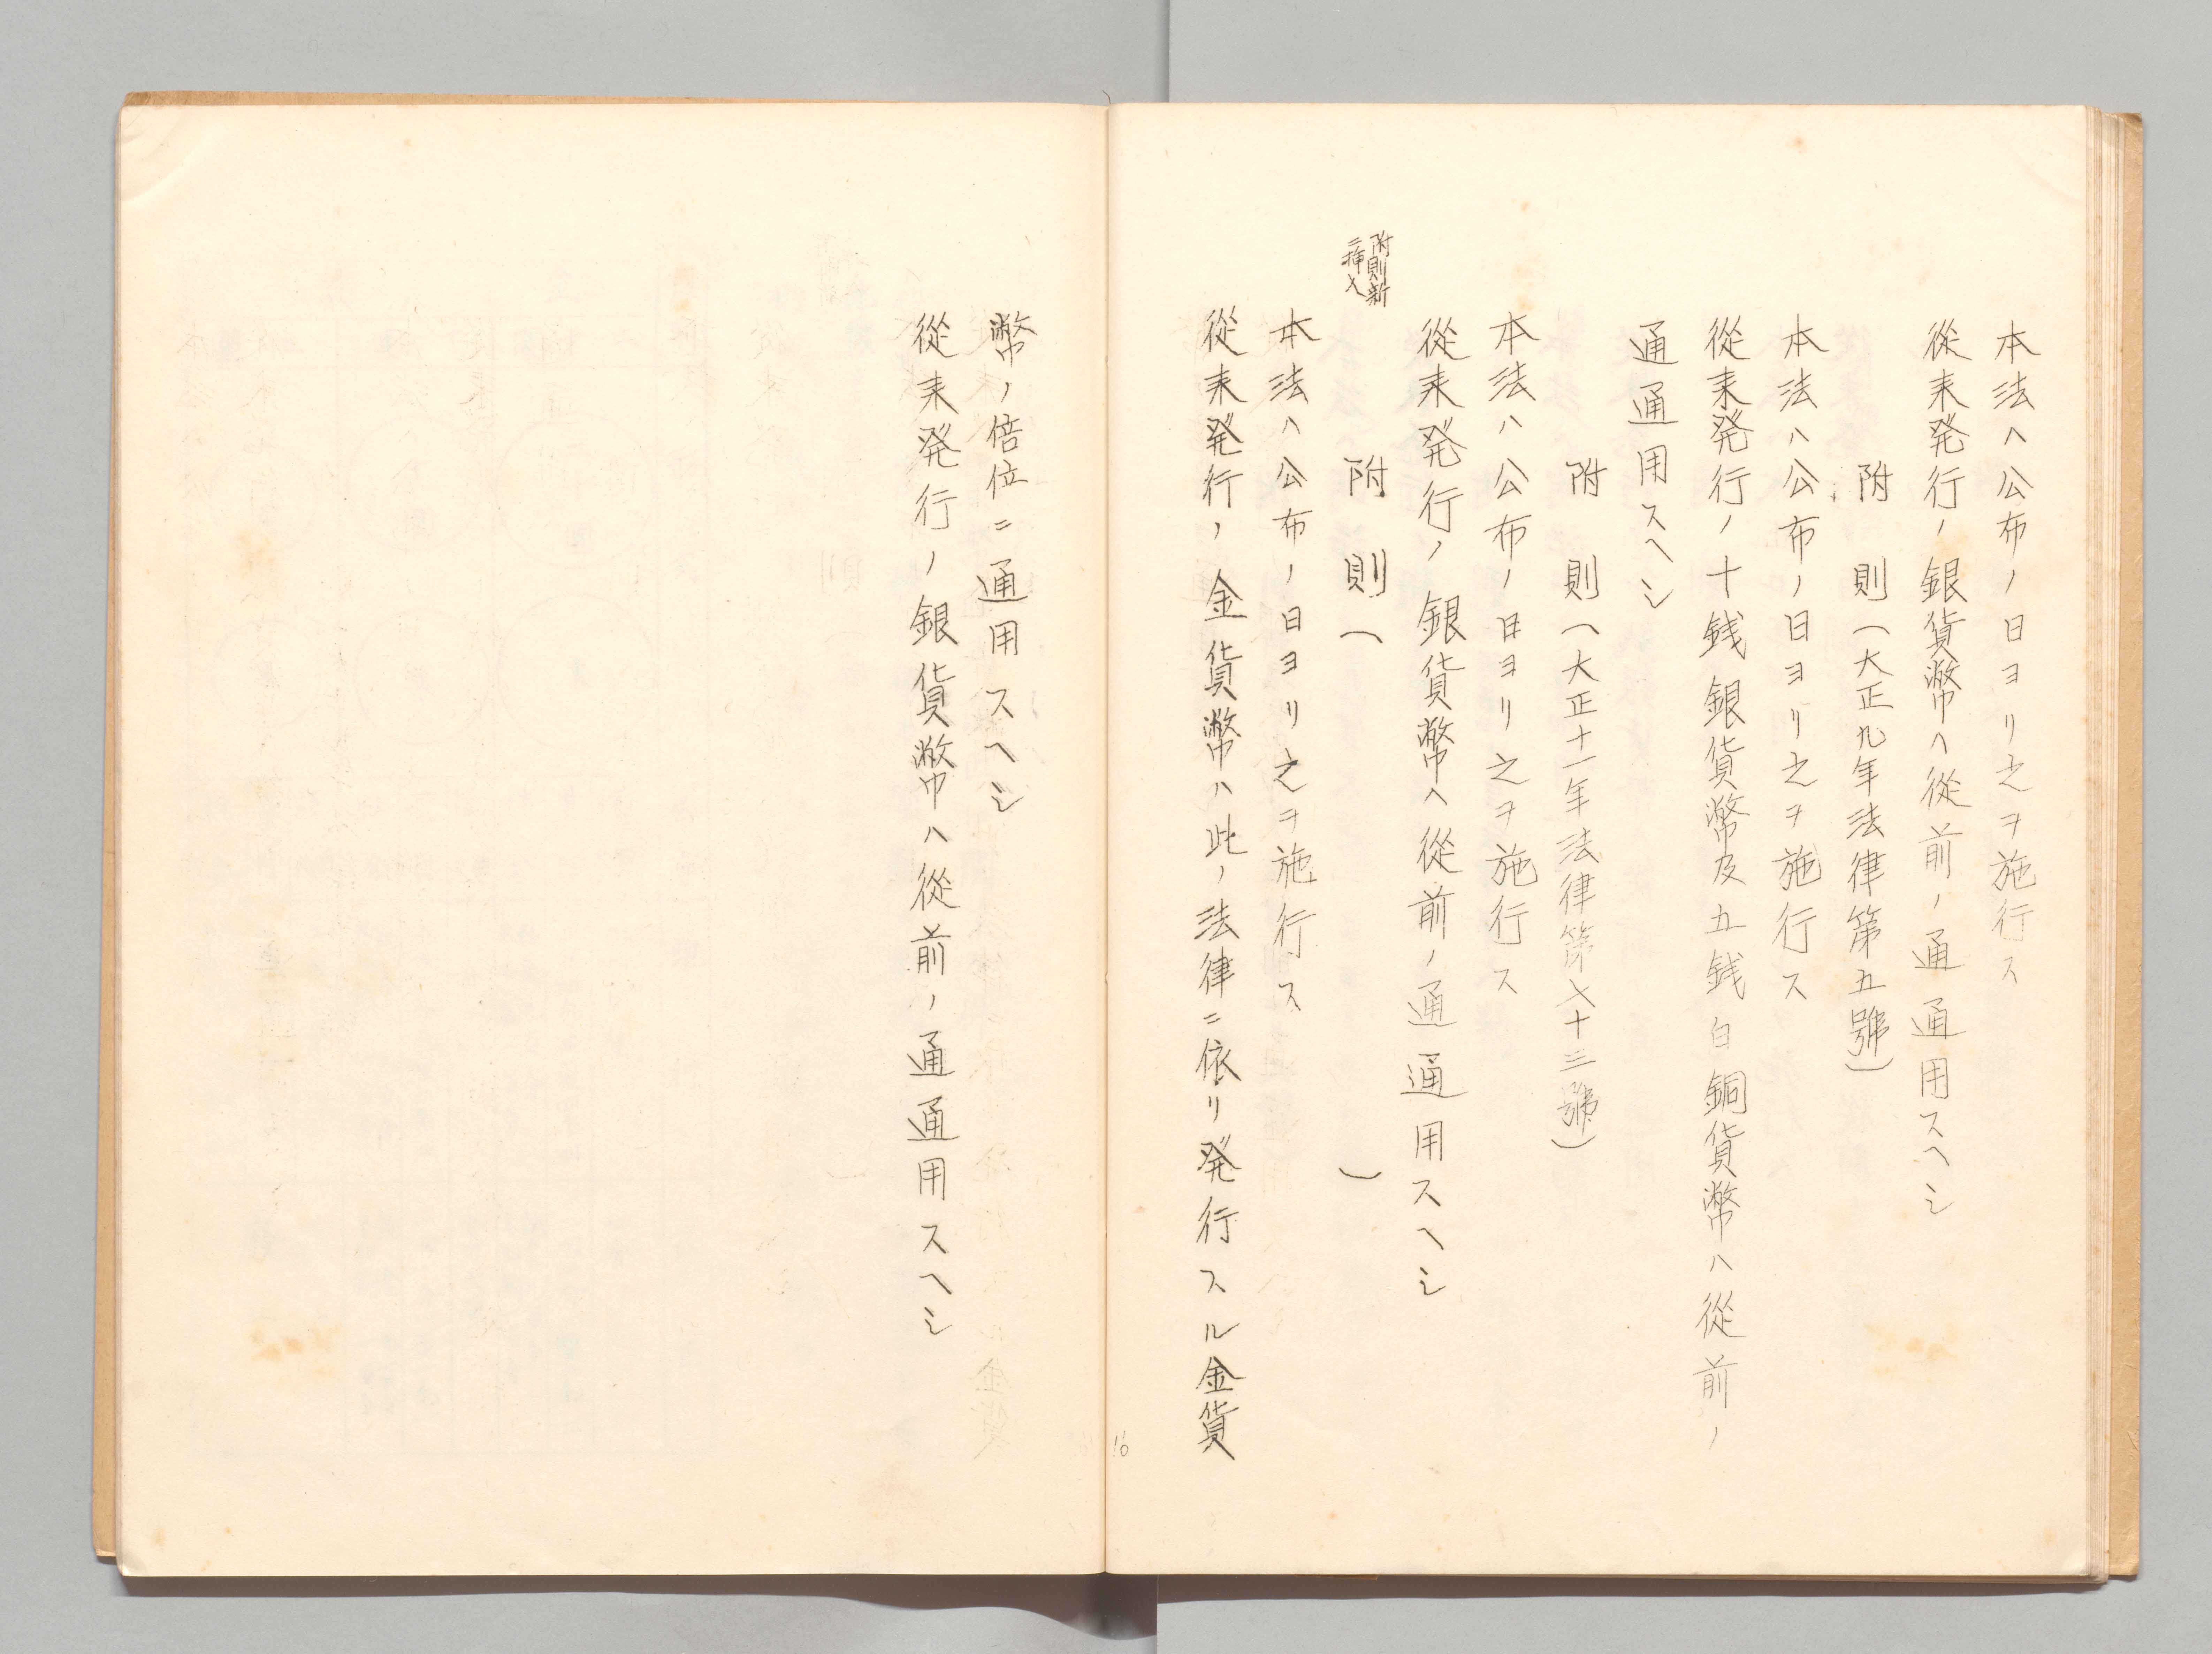 本法ハ公布ノ日ヨリ之ヲ施行ス
從来発行ノ銀貨幣ハ從前ノ通通用スヘシ
附則(大正九年法律第五號)
本法ハ公布ノ日ヨリ之ヲ施行ス
從来発行ノ十銭銀貨幣及五銭白銅貨幣ハ從前ノ
通通用スヘシ
附則(大正十一年法律第七十三號)
本法ハ公布ノ日ヨリ之ヲ施行ス
從来発行ノ銀貨幣ハ從前ノ通通用スヘシ
附則新
ニ挿入
附則(　)
本法ハ公布ノ日ヨリ之ヲ施行ス
從来発行ノ金貨幣ハ此ノ法律ニ依リ発行スル金貨
16
幣ノ倍位ニ通用スヘシ
從来発行ノ銀貨幣ハ從前ノ通通用スヘシ